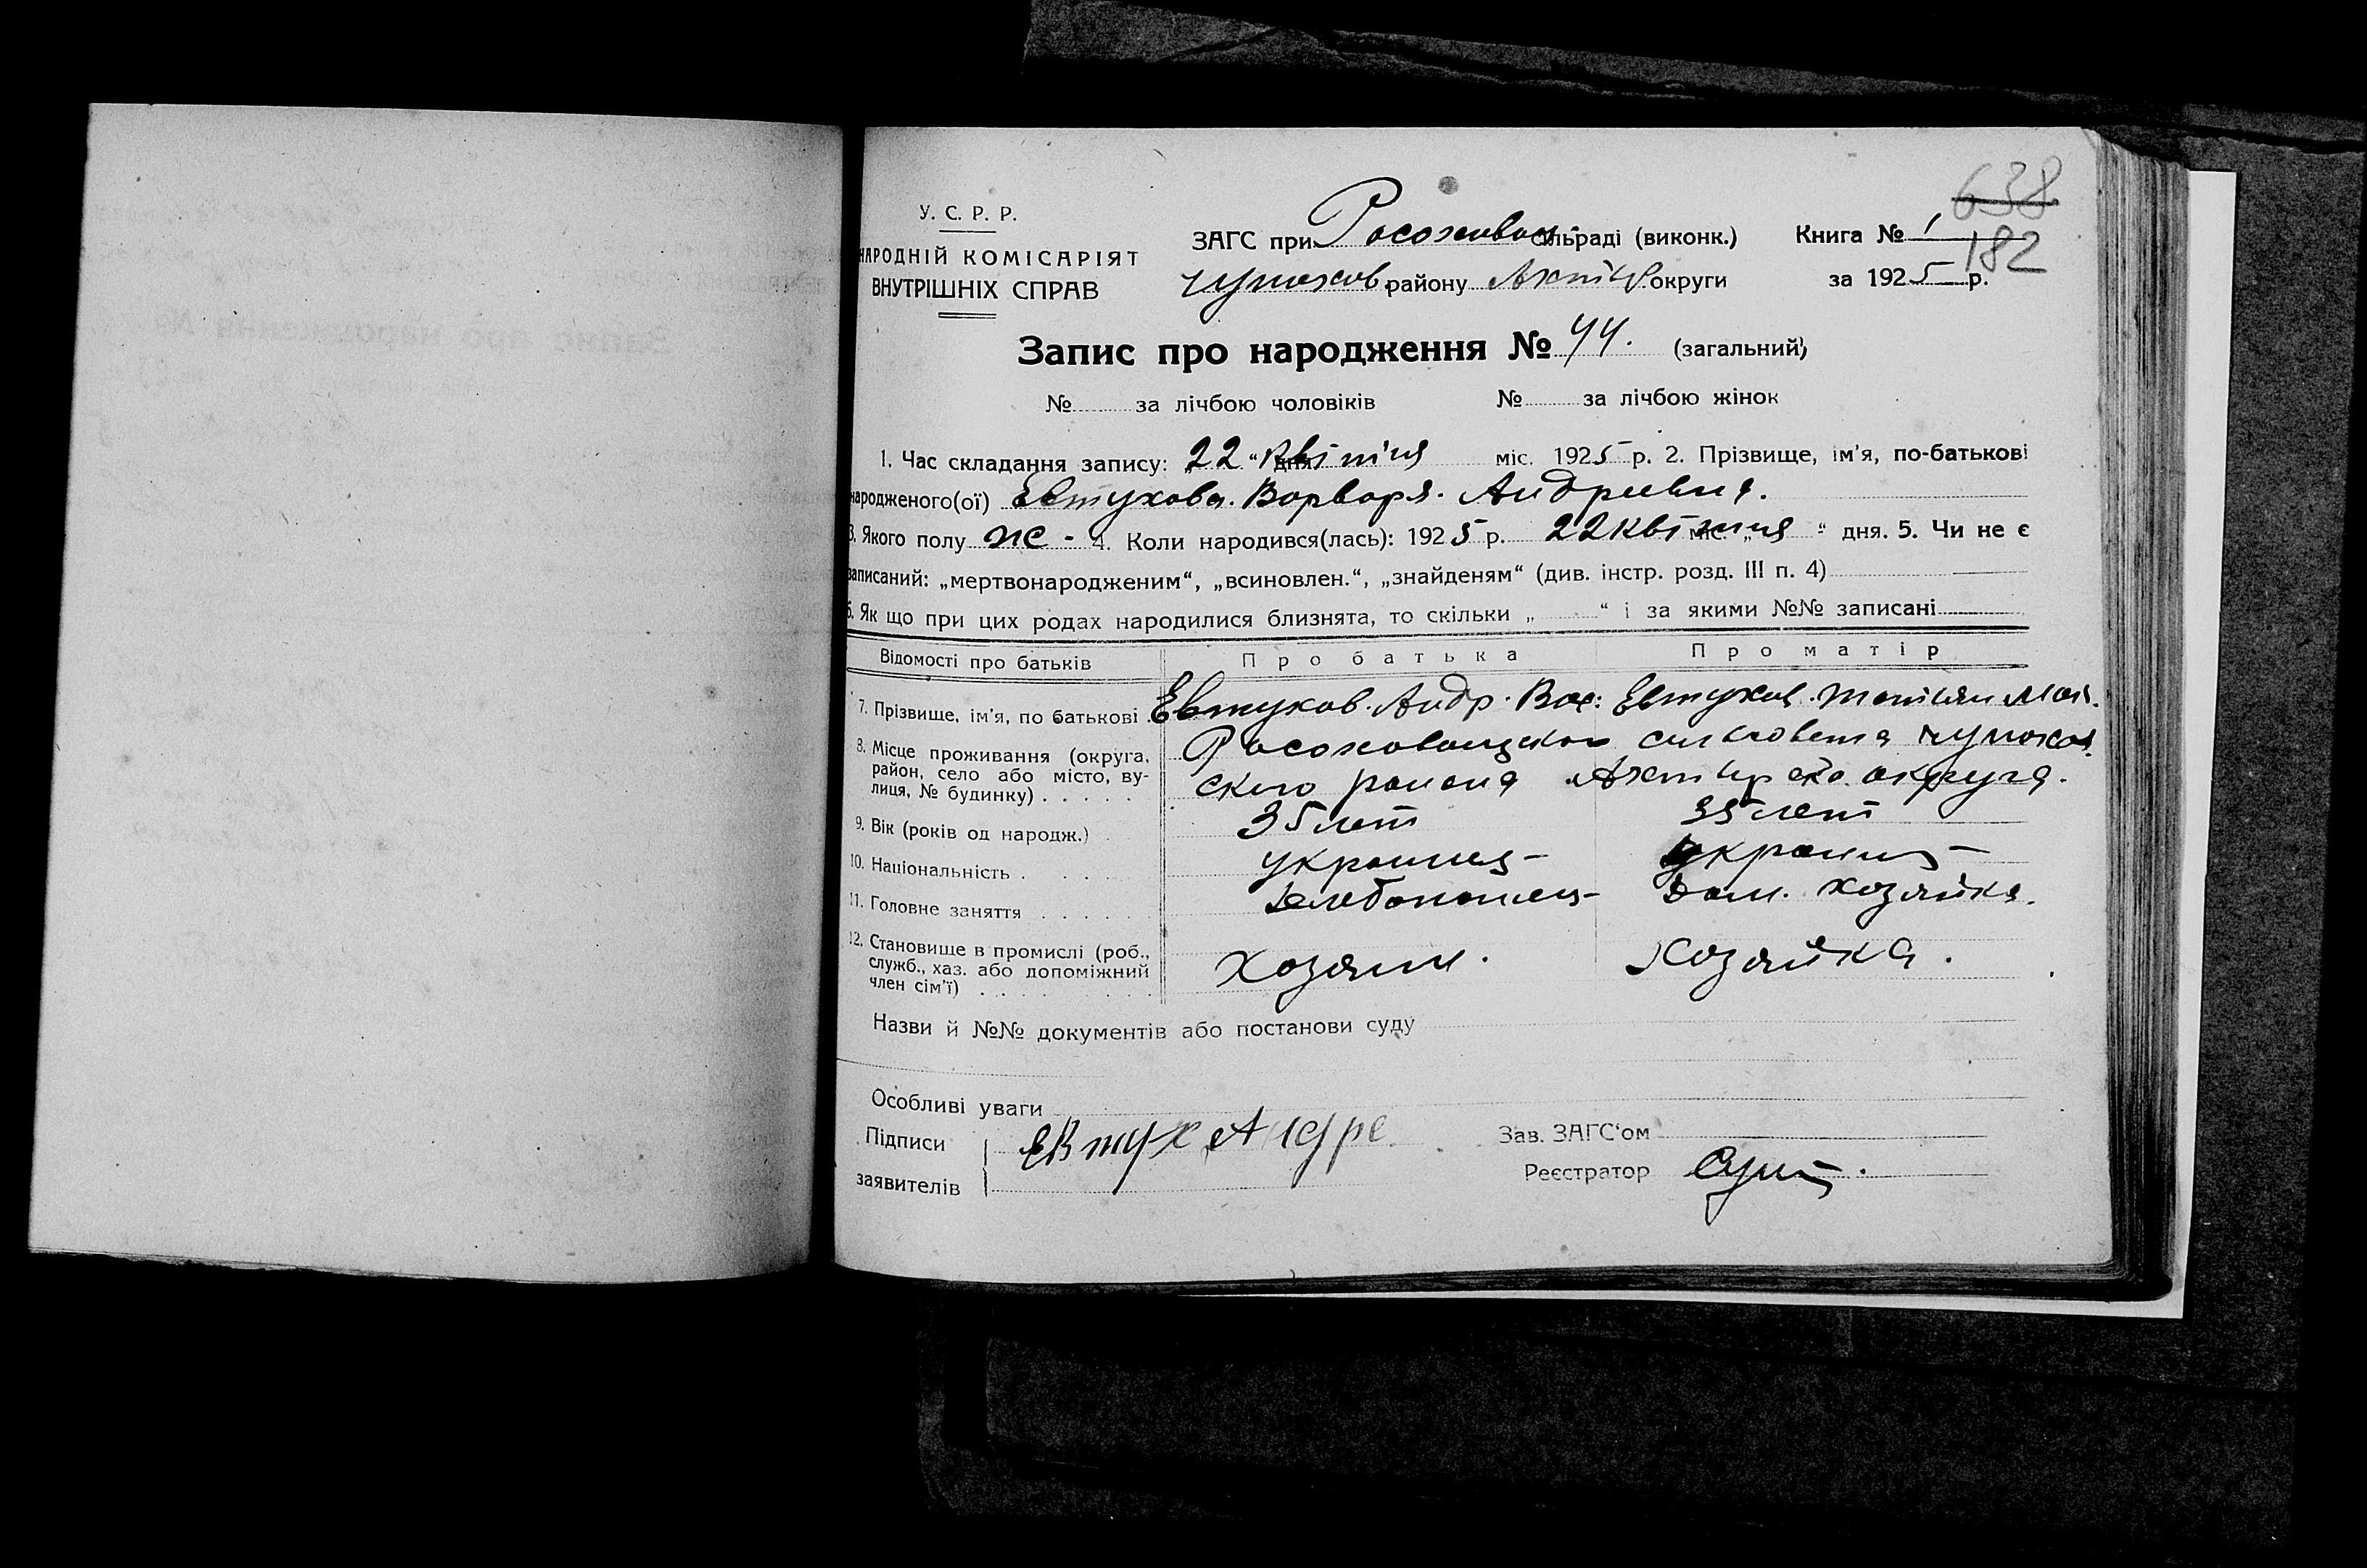 638
182
У. С. Р. Р.
НАРОДНІЙ КОМІСАРІЯТ
ВНУТРІШНІХ СПРАВ
ЗАГС при Росохов сільраді (виконк.) Книга № 1
Чупахов. району Ахтир округи за 1925 р.
Запис про народження № 44. (загальний)
№ за лічбою чоловіків № за лічбою жінок
1. Час складання запису: „22“ дня квітня міс. 1925 р. 2. Прізвище, ім'я, по-батькові
народженого(ої) Евтухова. Ворворя. Андреевна.
3. Якого полу жс - 4. Коли народився(лась): 1925 р. 22 квітня міс. „ “ дня. 5. Чи не є
записаний: „мертвонародженим“, „всиновлен.“, „знайденям“ (див. інстр. розд. III п. 4)
6. Як що при цих родах народилися близнята, то скільки „ “ і за якими №№ записані
Відомості про батьків Про батька Про матір
7. Прізвище, ім'я, по батькові . Евтухов. Андр. Евтухов.
8. Місце проживання (округа,
район, село або місто, ву-
лиця, № будинку) . . . . .
ского района Ахтирско. округа.
9. Вік (років од народж.) 35 лет 35 лет
10. Національність . . . . украинц- украинц-
11. Головне заняття . . . . . хлебопашец- Дом. хозяйка.
12. Становище в промислі (роб.,
служб., хаз. або допоміжний
член сім'ї) . . . . . . . . . хозяин. хозяйка.
Назви й №№ документів або постанови суду
Особливі уваги
Підписи Евтух Андре
заявителів
Зав. ЗАГС'ом
Реєстратор